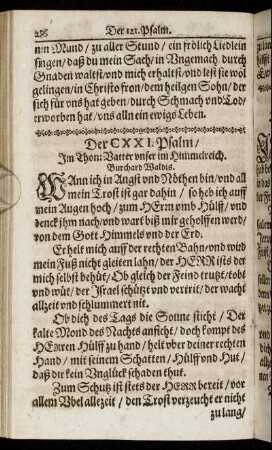 256 Der 121. Psalm.
nin Mund / zu aller Stund / ein frölich Liedlein
singen / daß du mein Sach / in Ungemach, durch
Gnaden waltst / und mich erhaltst / und lest sie wol
gelingen / in Christo fron / dem heilgen Sohn / der
sich für uns hat geben / durch Schmach und Tod /
erworben hat / uns alln ein ewigs Leben.
Der CXXI. Psalm /
Im Thon: Vatter unser im Himmelreich.
Burchard Waldis.
WAnn ich in Angst und Nöthen bin / und all
mein Trost ist gar dahin / so heb ich auff
mein Augen hoch / zum HErrn umb Hülff / und
denck ihm nach / und wart biß mir geholffen werd /
von dem Gott Himmels und der Erd.
Er helt mich auff der rechten Bahn / und wird
mein Fuß nicht gleiten lahn / der HERR ists der
mich selbst behüt / Ob gleich der Feind trutzt / tobt
und wüt / der Israel schützt und vertrit / der wacht
allzeit und schlummert nit.
Ob dich des Tags die Sonne sticht / Der
kalte Mond des Nachts anficht / doch kompt des
HErren Hülff zu hand / helt uber deiner rechten
Hand / mit seinem Schatten / Hülff und Hut /
daß dir kein Unglück schaden thut.
Zum Schutz ist stets der HERR bereit / vor
allem Ubel allezeit / den Trost verzeucht er nicht
zu lang /